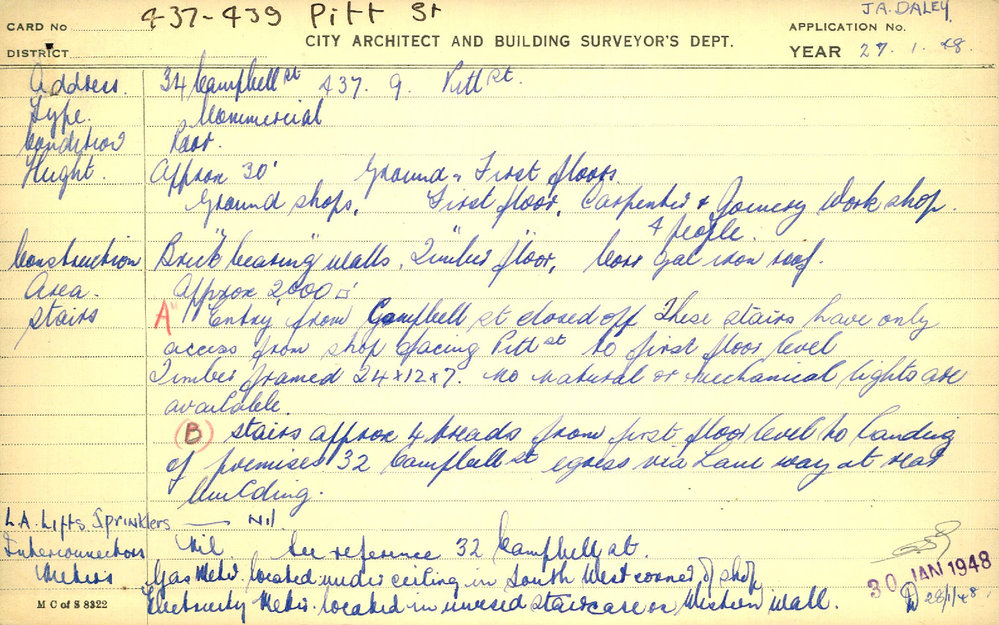 CARD No 437-439 Pitt St J.A. DALEY
CITY ARCHITECT AND BUILDING SURVEYOR'S DEPT. APPLICATION No.
DISTRICT YEAR 27. 1. 48.
Address. 34 Campbell St 437. 9. Pitt St.
Type. Commercial
Condition Poor.
Height. Approx 30' Ground & First floors.
Ground shops. First floor, Carpenter & Joinery Work shop.
4 people.
Construction Brick "bearing" walls. Timber floor, Corr Gal iron roof.
Area. Approx 2000 □'
Stairs "A" "Entry" from Campbell St closed off These stairs have only
access from shop facing Pitt St to first floor level
Timber framed 24x12x7. No natural or mechanical lights are
available.
(B) Stairs approx 4 treads from first floor level to landing
of premises 32 Campbell St egress via Lane way at rear
building.
L.A. Lifts. Sprinklers — Nil
Interconnection Nil. See reference 32 Campbell St.
Meters Gas Meter located under ceiling in South West corner of shop
Electricity Meter located in unused staircase on Western wall.
30 JAN 1948
M C of S 8322 28/1/48